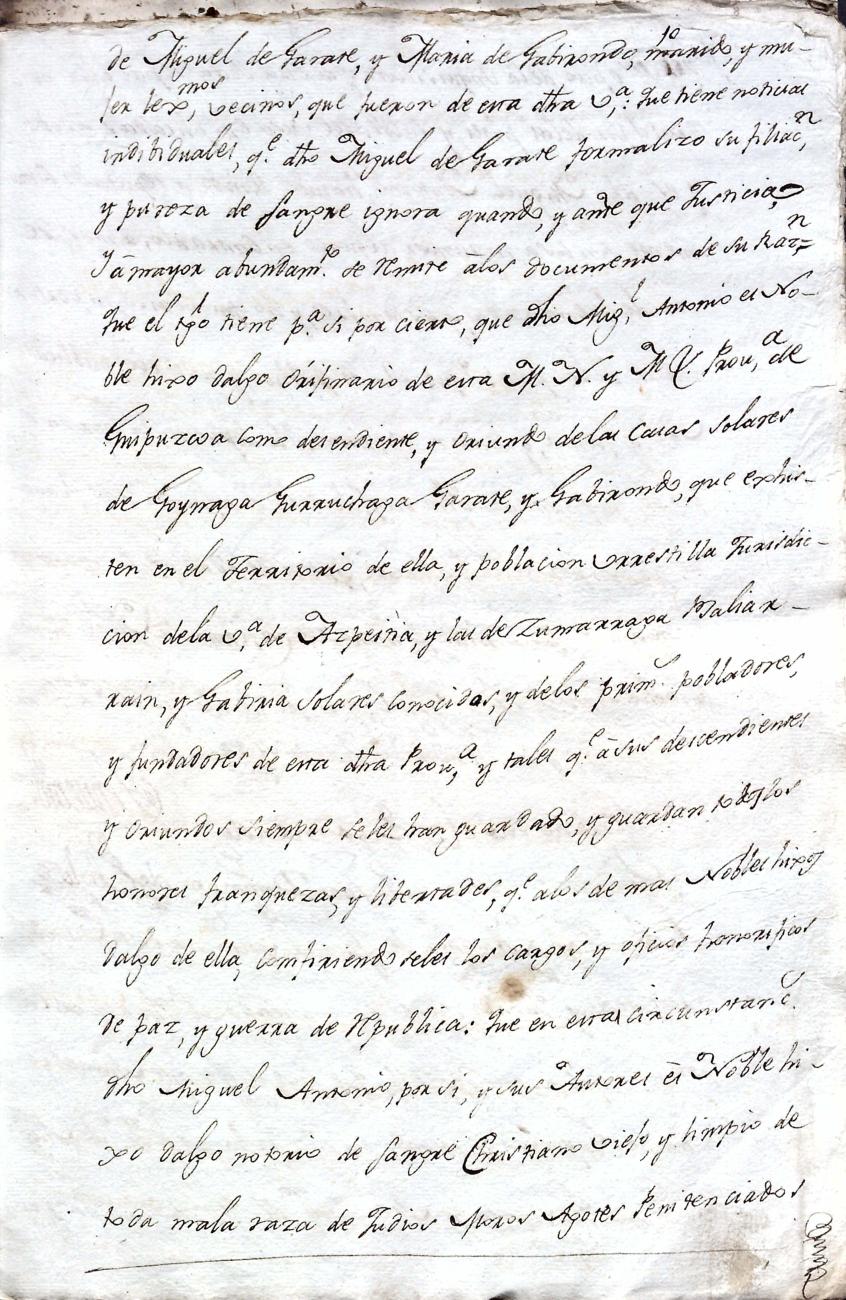 de Miguel de Garate, y Maria de Gabirondo, marido, y mu-
jer lexmos, vecinos, que fueron de esta dha Va: Que tiene noticias
individuales, qe dho Miguel de Garate formalizo su filiacn,
y pureza de sangre ignora quando, y ante que Justicia,
y à mayor abundamto se remite àlos documentos de su razn=
Que el tgo tiene pa si por cierto, que dho Migl Antonio es No-
ble hixo dalgo originario de esta M. N. y M. L. Prova de
Guipuzcoa como descendiente, y oriundo delas casas solares
de Goynaga Gurruchaga Garate, y Gabirondo, que exhis-
ten en el Territorio de ella, y poblacion Urrestilla Jurisdic-
cion dela Va de Azpeitia, y las de Zumarraga Ysaliar-
rain, y Gabiria solares conocidos, y delos prims pobladores,
y fundadores de esta dha Prova y tales qe à sus descendientes
y oriundos siempre seles han guardado, y guardan todos los
honores franquezas, y libertades, qe alos de mas Nobles hixos
dalgo de ella, confiriendoseles los cargos, y oficios honorificos
de paz, y guerra de Republica: Que en estas circunstancs
dho Miguel Antonio, por si, y sus Autores és Noble hi-
xo dalgo notorio de sangre Christiano viejo, y limpio de
toda mala raza de Judios Moros Agotes Penitenciados